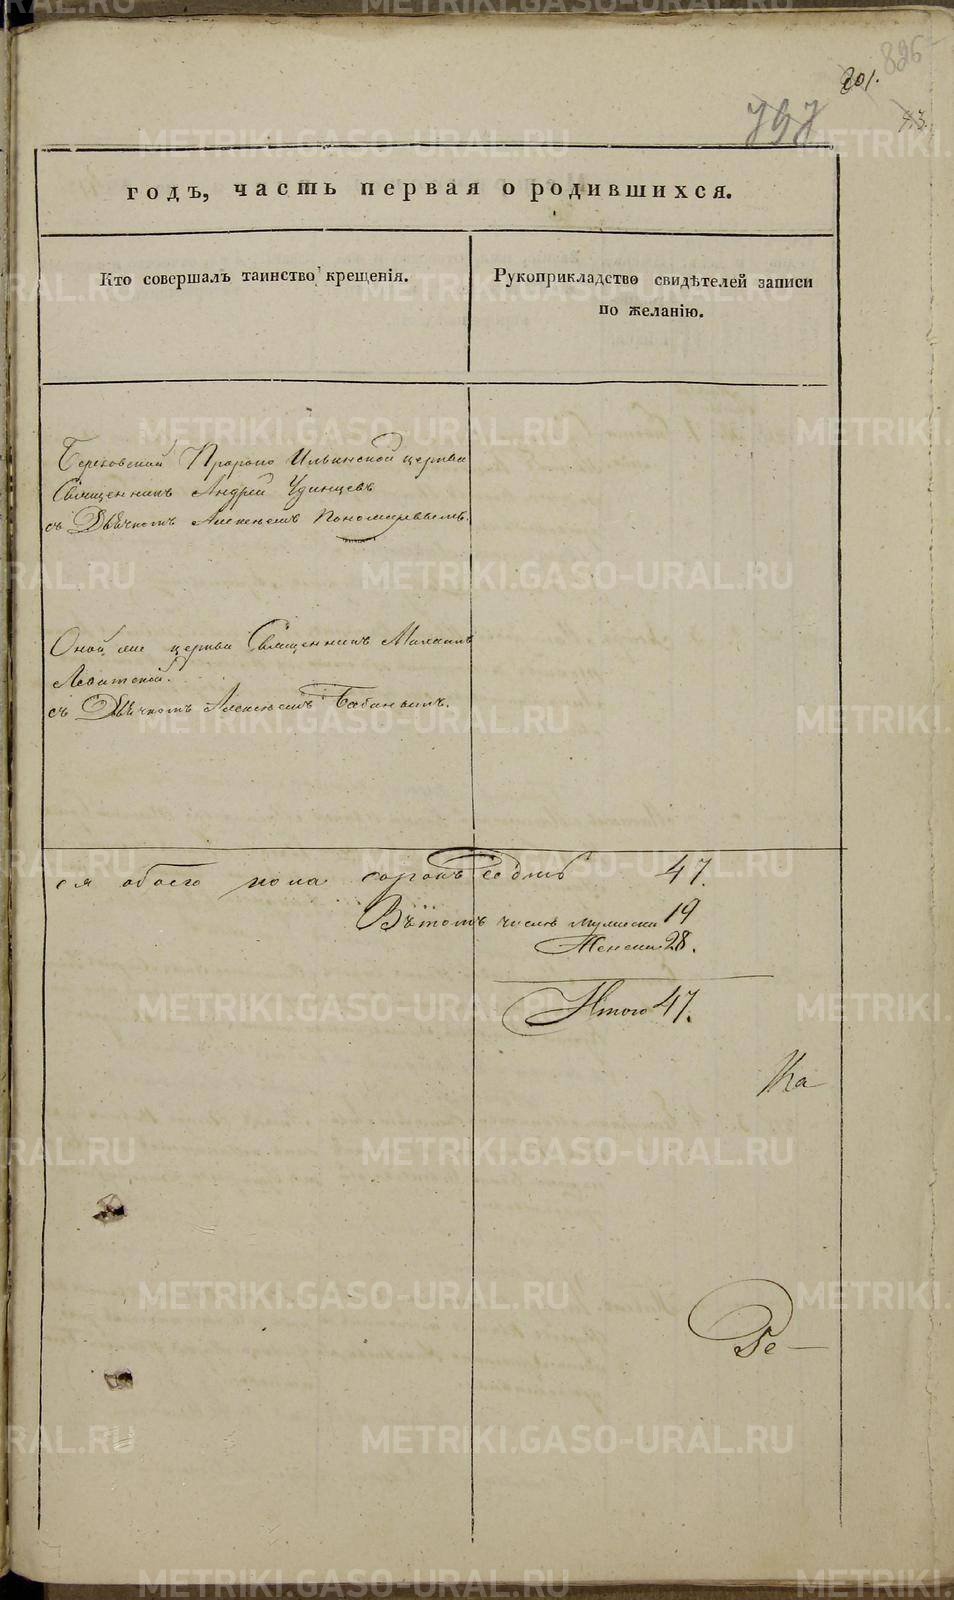 826
201.
797
43.
годъ, часть первая о родившихся.
Кто совершалъ таинство крещенія.
Рукоприкладство свидѣтелей записи
по желанію.
Пророко Ильинской церкви
Священникъ Андрей Удинцевъ
съ Дьячкомъ Алексѣемъ Пономаревымъ.
Оной же церкви Священникъ Михаилъ
Левитской.
съ Дьячкомъ Алексѣемъ Бабинымъ.
ся обоего пола сорокъ седмь 47.
Въ томъ числѣ мужеска 19
Женска 28.
Итого 47.
Ка
Бе
METRIKI.GASO-URAL.RU